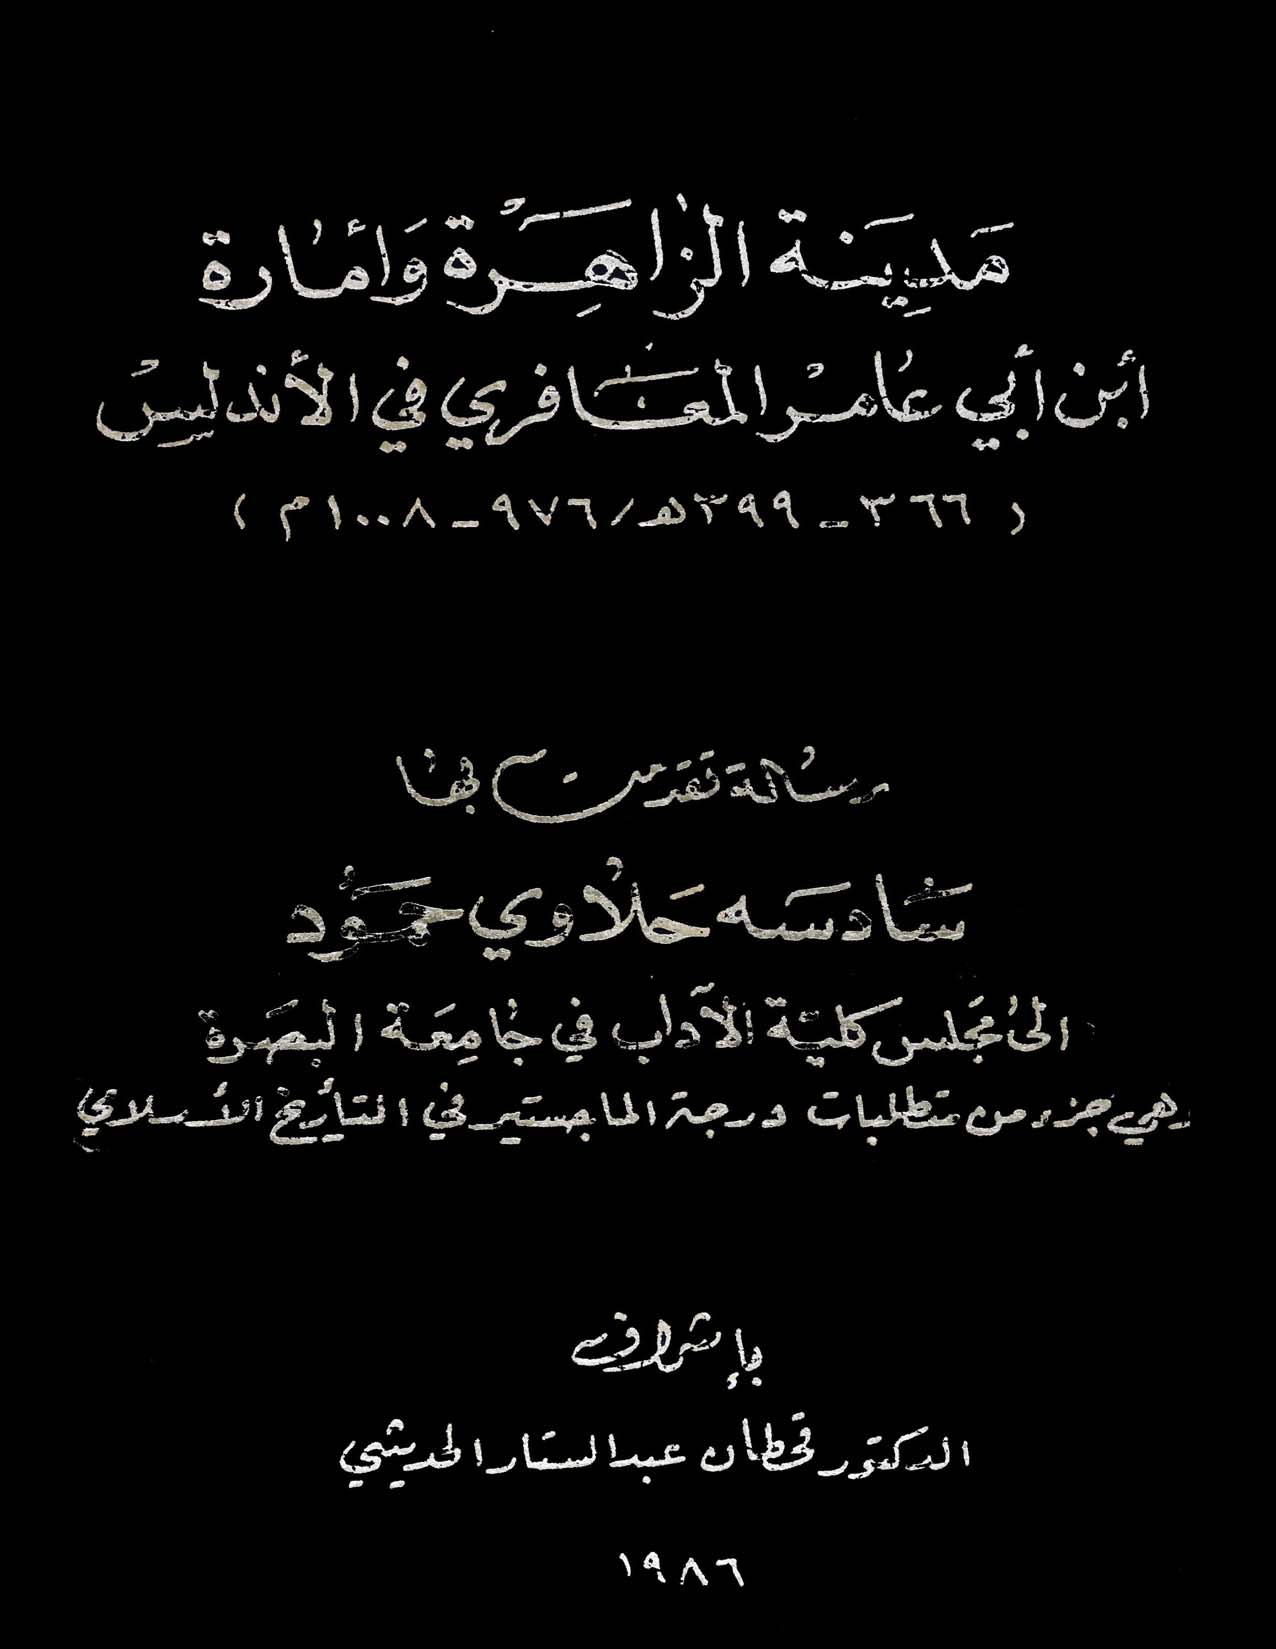 مدينة الزاهرة وأمارة
أبن أبي عامر المعافري في الأندلس
( ٣٦٦ - ٣٩٩ هـ / ٩٧٦ - ١٠٠٨ م )
رسالة تقدمت بها
سادسه حلاوي حمود
الى مجلس كلية الآداب في جامعة البصرة
وهي جزء من متطلبات درجة الماجستير في التأريخ الأسلامي
بإشراف
الدكتور قحطان عبدالستار الحديثي
١٩٨٦